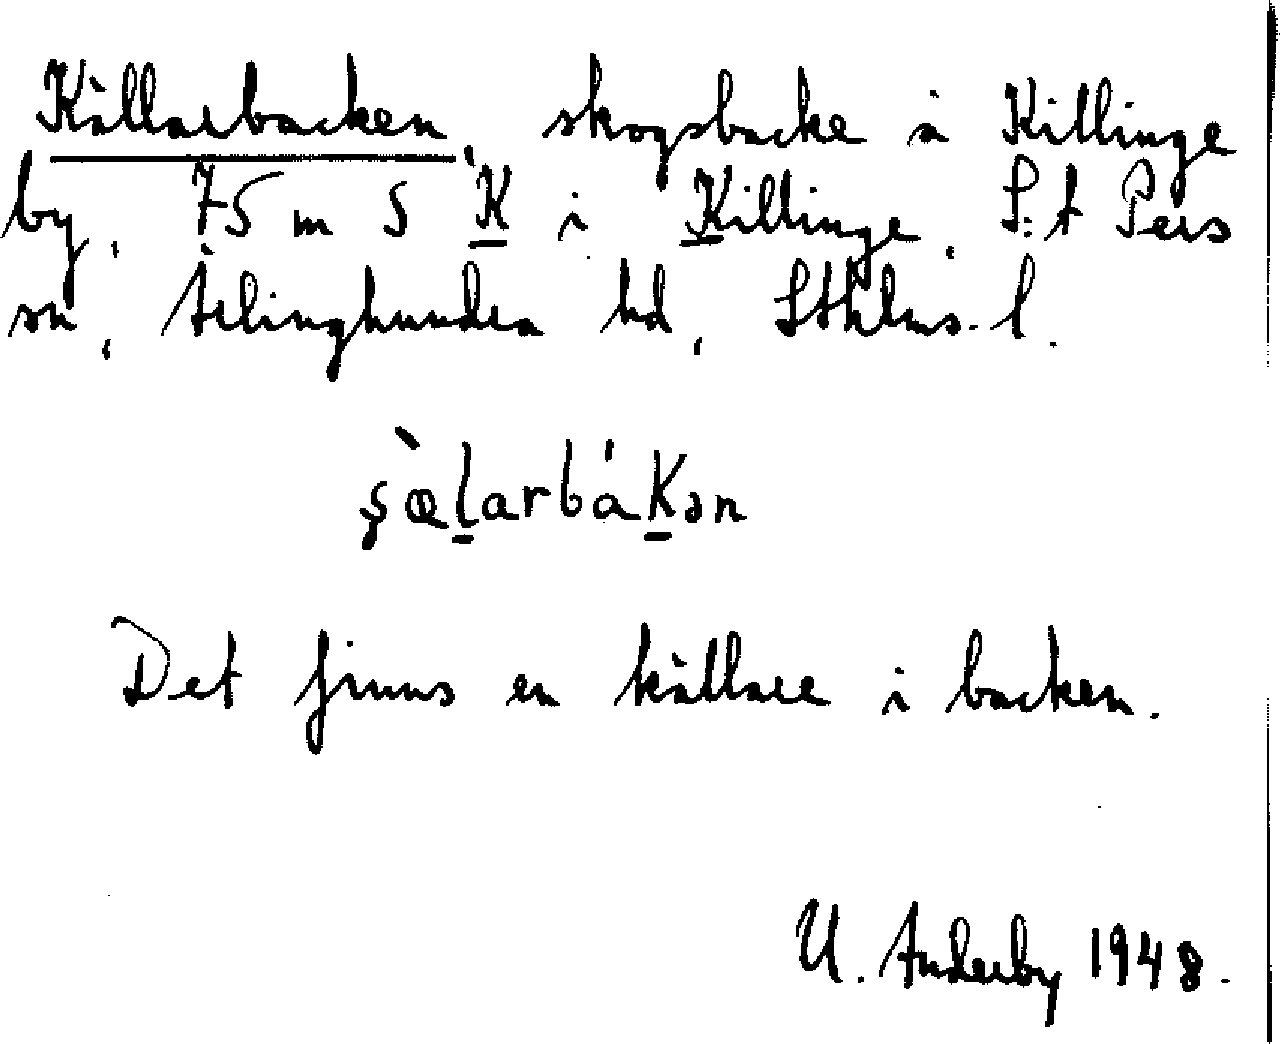 Källarbacken, skogsbacke å Killinge
by, 75 m S K i Killinge, S:t Pers
sn, Ärlinghundra hd, Sthlms l.
şæ̀ḻarbáḴən
Det finns en källare i backen.
U. Anderby 1948.